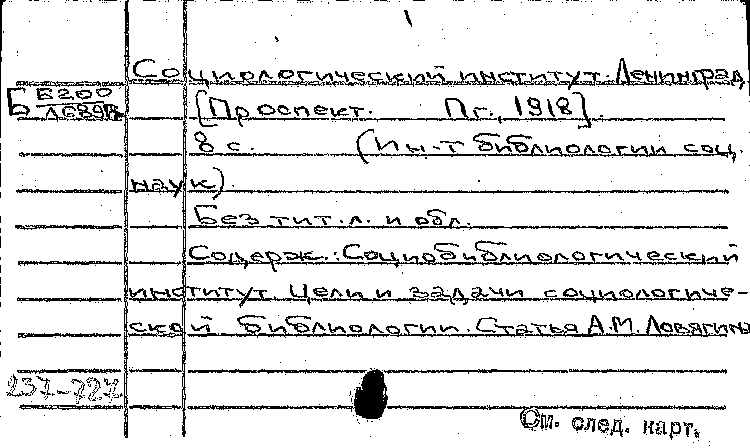 Социологический институт. Ленинград
Б 5200
Л689
[Проспект. Пг., 1918].
8 с. (Ин-т библиологии соц.
наук).
Без тит. л. и обл.
Содерж.: Социобиблиологический
институт. Цели и задачи социологиче-
ской библиологии. Статья А.М. Ловягина
237-727
См. след. карт.